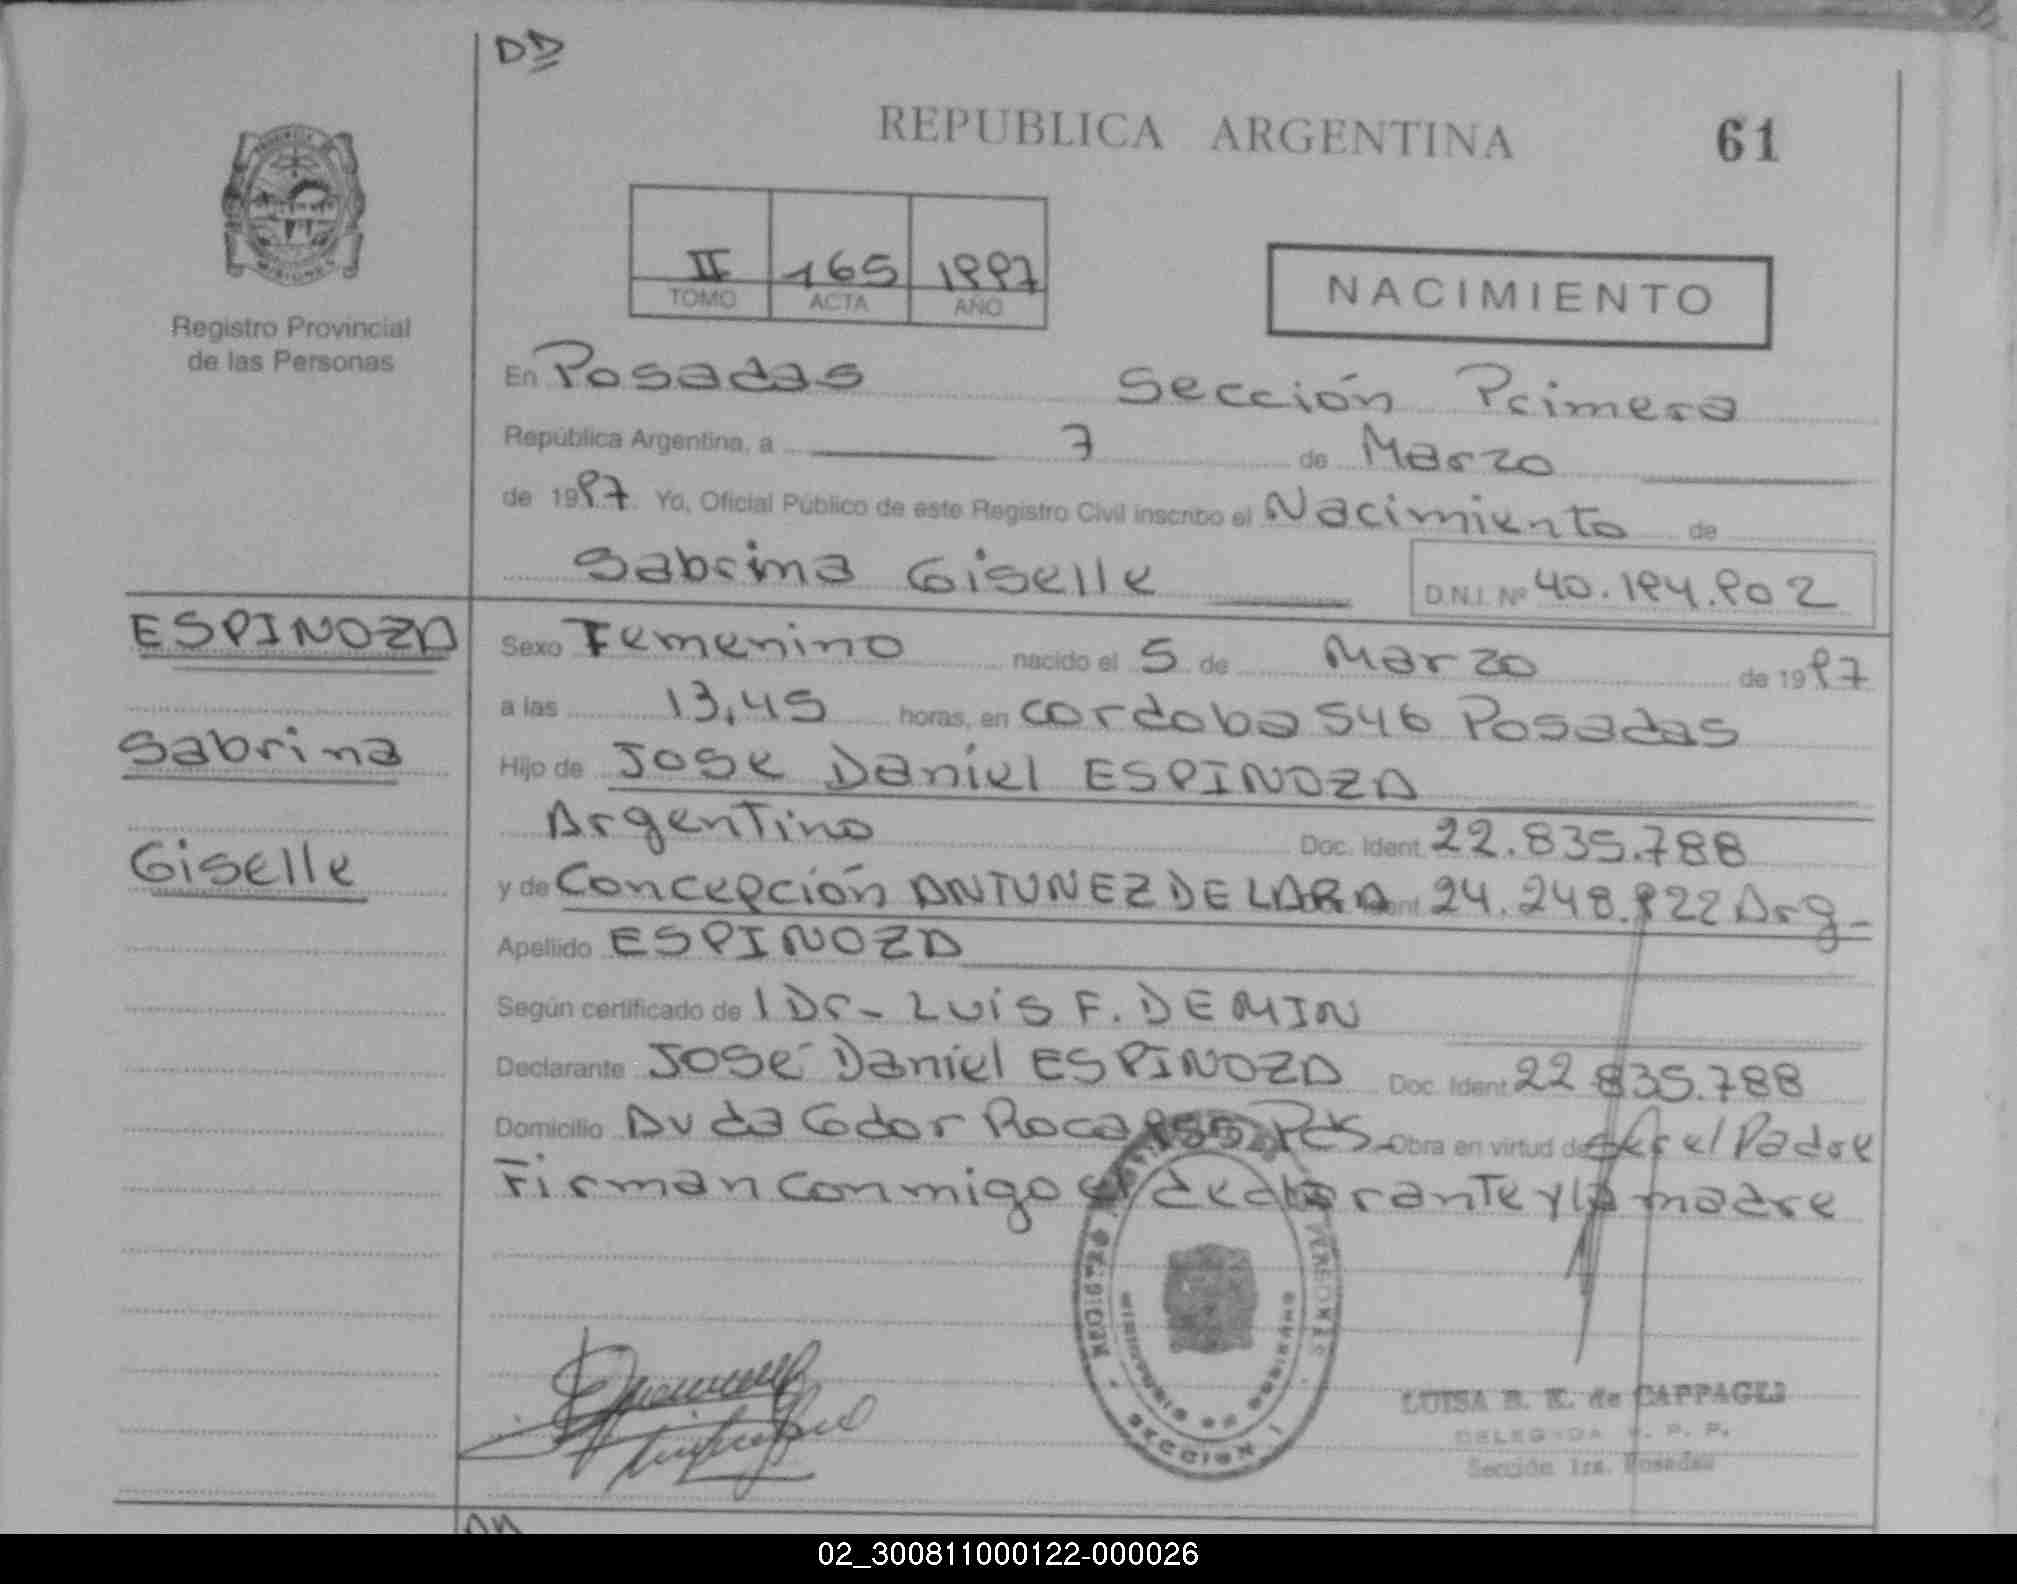 DD
REPUBLICA ARGENTINA
61
MISIONES
II 165 1997
TOMO ACTA AÑO
NACIMIENTO
Registro Provincial
de las Personas
En Posadas Sección Primera
República Argentina, a 7 de Marzo
de 1997. Yo, Oficial Público de este Registro Civil inscribo el Nacimiento de
Sabrina Giselle D.N.I. Nº 40.194.902
ESPINOZA
Sabrina
Giselle
Sexo Femenino nacido el 5 de Marzo de 1997
a las 13,45 horas, en cordoba 546 Posadas
Hijo de Jose Daniel ESPINOZA
Argentino Doc. Ident. 22.835.788
y de Concepción ANTUNEZ DE LARA 24.248.922 Arg-
Apellido ESPINOZA
Según certificado de 1 Dr- Luis F. DEMIN
Declarante José Daniel ESPINOZA Doc. Ident. 22.835.788
Domicilio Avda Gdor Roca Pds. Obra en virtud de ser el Padre
Firman conmigo el declarante y la madre
REGISTRO PERSONAS
SECCION 1
LUISA B. K. de
DELEGADA R. P. P.
Sección 1ra. Posadas
02_300811000122-000026